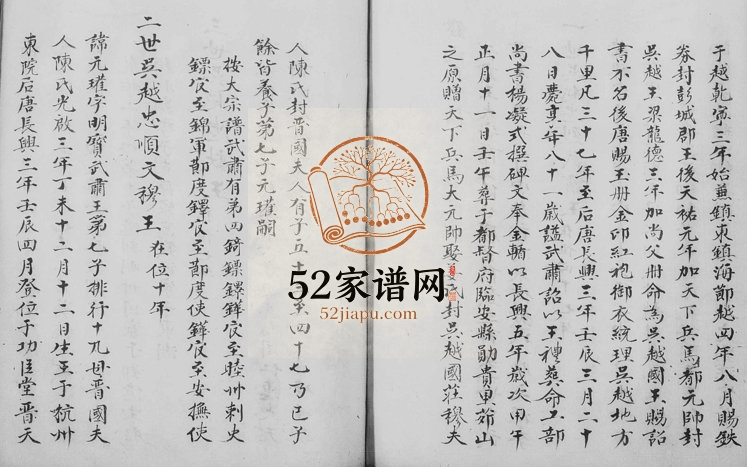 于越乾寧三年始兼鎮東鎮海節越四年八月賜鉄
券封彭城郡王後天祐元年加天下兵馬都元帥封
吳越王梁龍德三年加尚父册命為吳越國王賜詔
書不名後唐賜玉册金印紅袍御衣統理吳越地方
千里凡三十七年至后唐長興三年壬辰三月二十
八日薨享年八十一歲謚武肅詔以王禮葬命工部
尚書楊凝式撰碑文奉金輀以長興五年歲次甲午
正月十一日壬午葬于都督府臨安縣勛貴里茆山
之原贈天下兵馬大元帥娶 氏封吳越國莊穆夫
人陳氏封晋國夫人有子五十 至四十七乃己子
餘皆養子第七子元瓘嗣
按大宗譜武肅有第四錡鏢鏐鏵官至睦州刺史
鏢官至錦軍節度鐸官至節度使鏵官至安撫使
二世吳越忠順文穆王 在位十年
諱元瓘字明寶武肅王第七子排行十九母晋國夫
人陳氏光啟三年丁未十二月十二日生王于杭州
東院后唐長興三年壬辰四月登位于功臣堂晋天
52家谱网
52jiapu.com